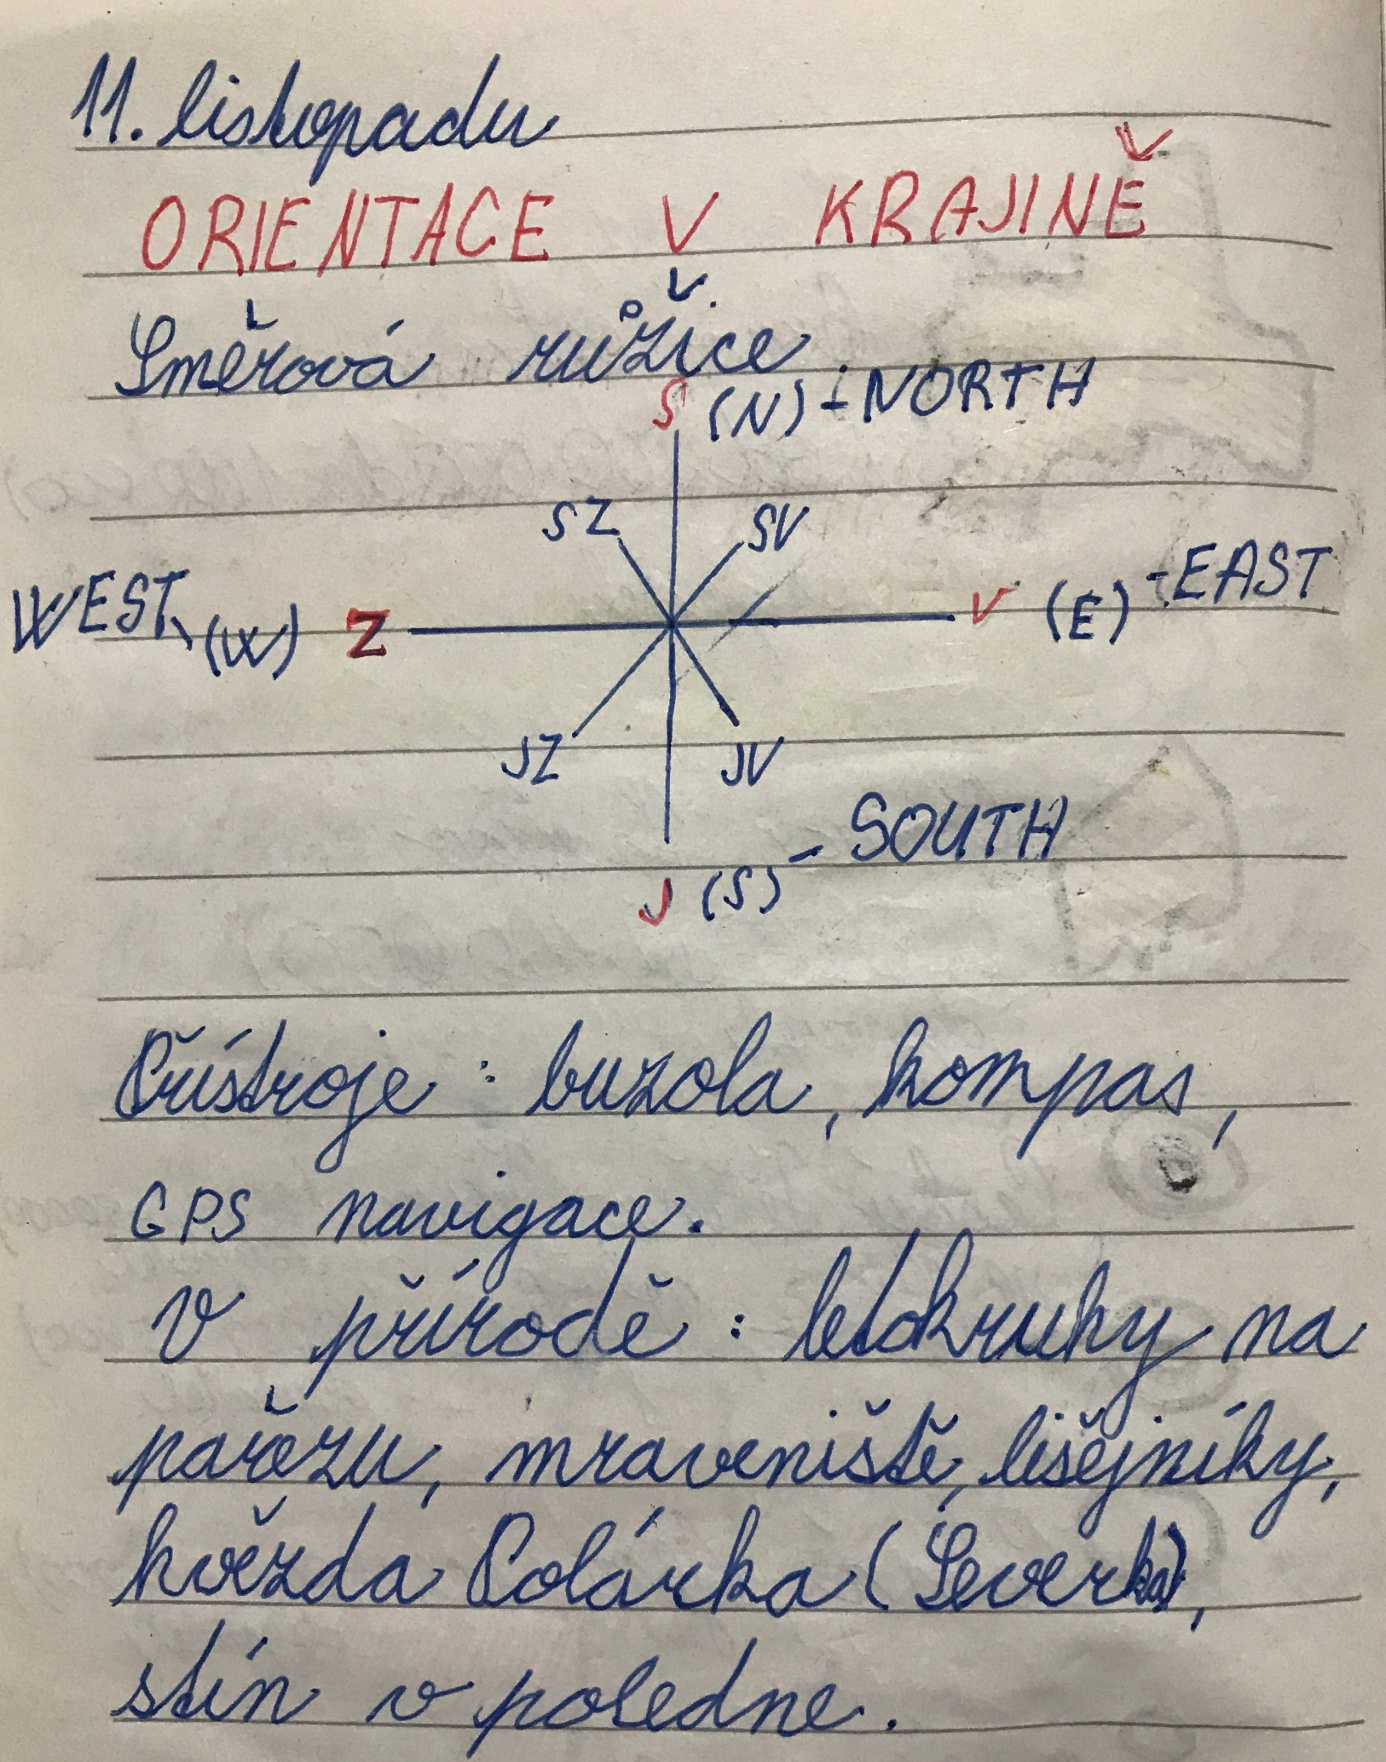 11. listopadu
ORIENTACE V KRAJINĚ
Směrová růžice
S (N) - NORTH
SZ SV
WEST, (W) Z V (E) - EAST
JZ JV
J (S) - SOUTH
Přístroje : buzola, kompas,
GPS navigace.
V přírodě : letokruhy na
pařezu, mraveniště, lišejníky,
hvězda Polárka (Severka),
stín v poledne.